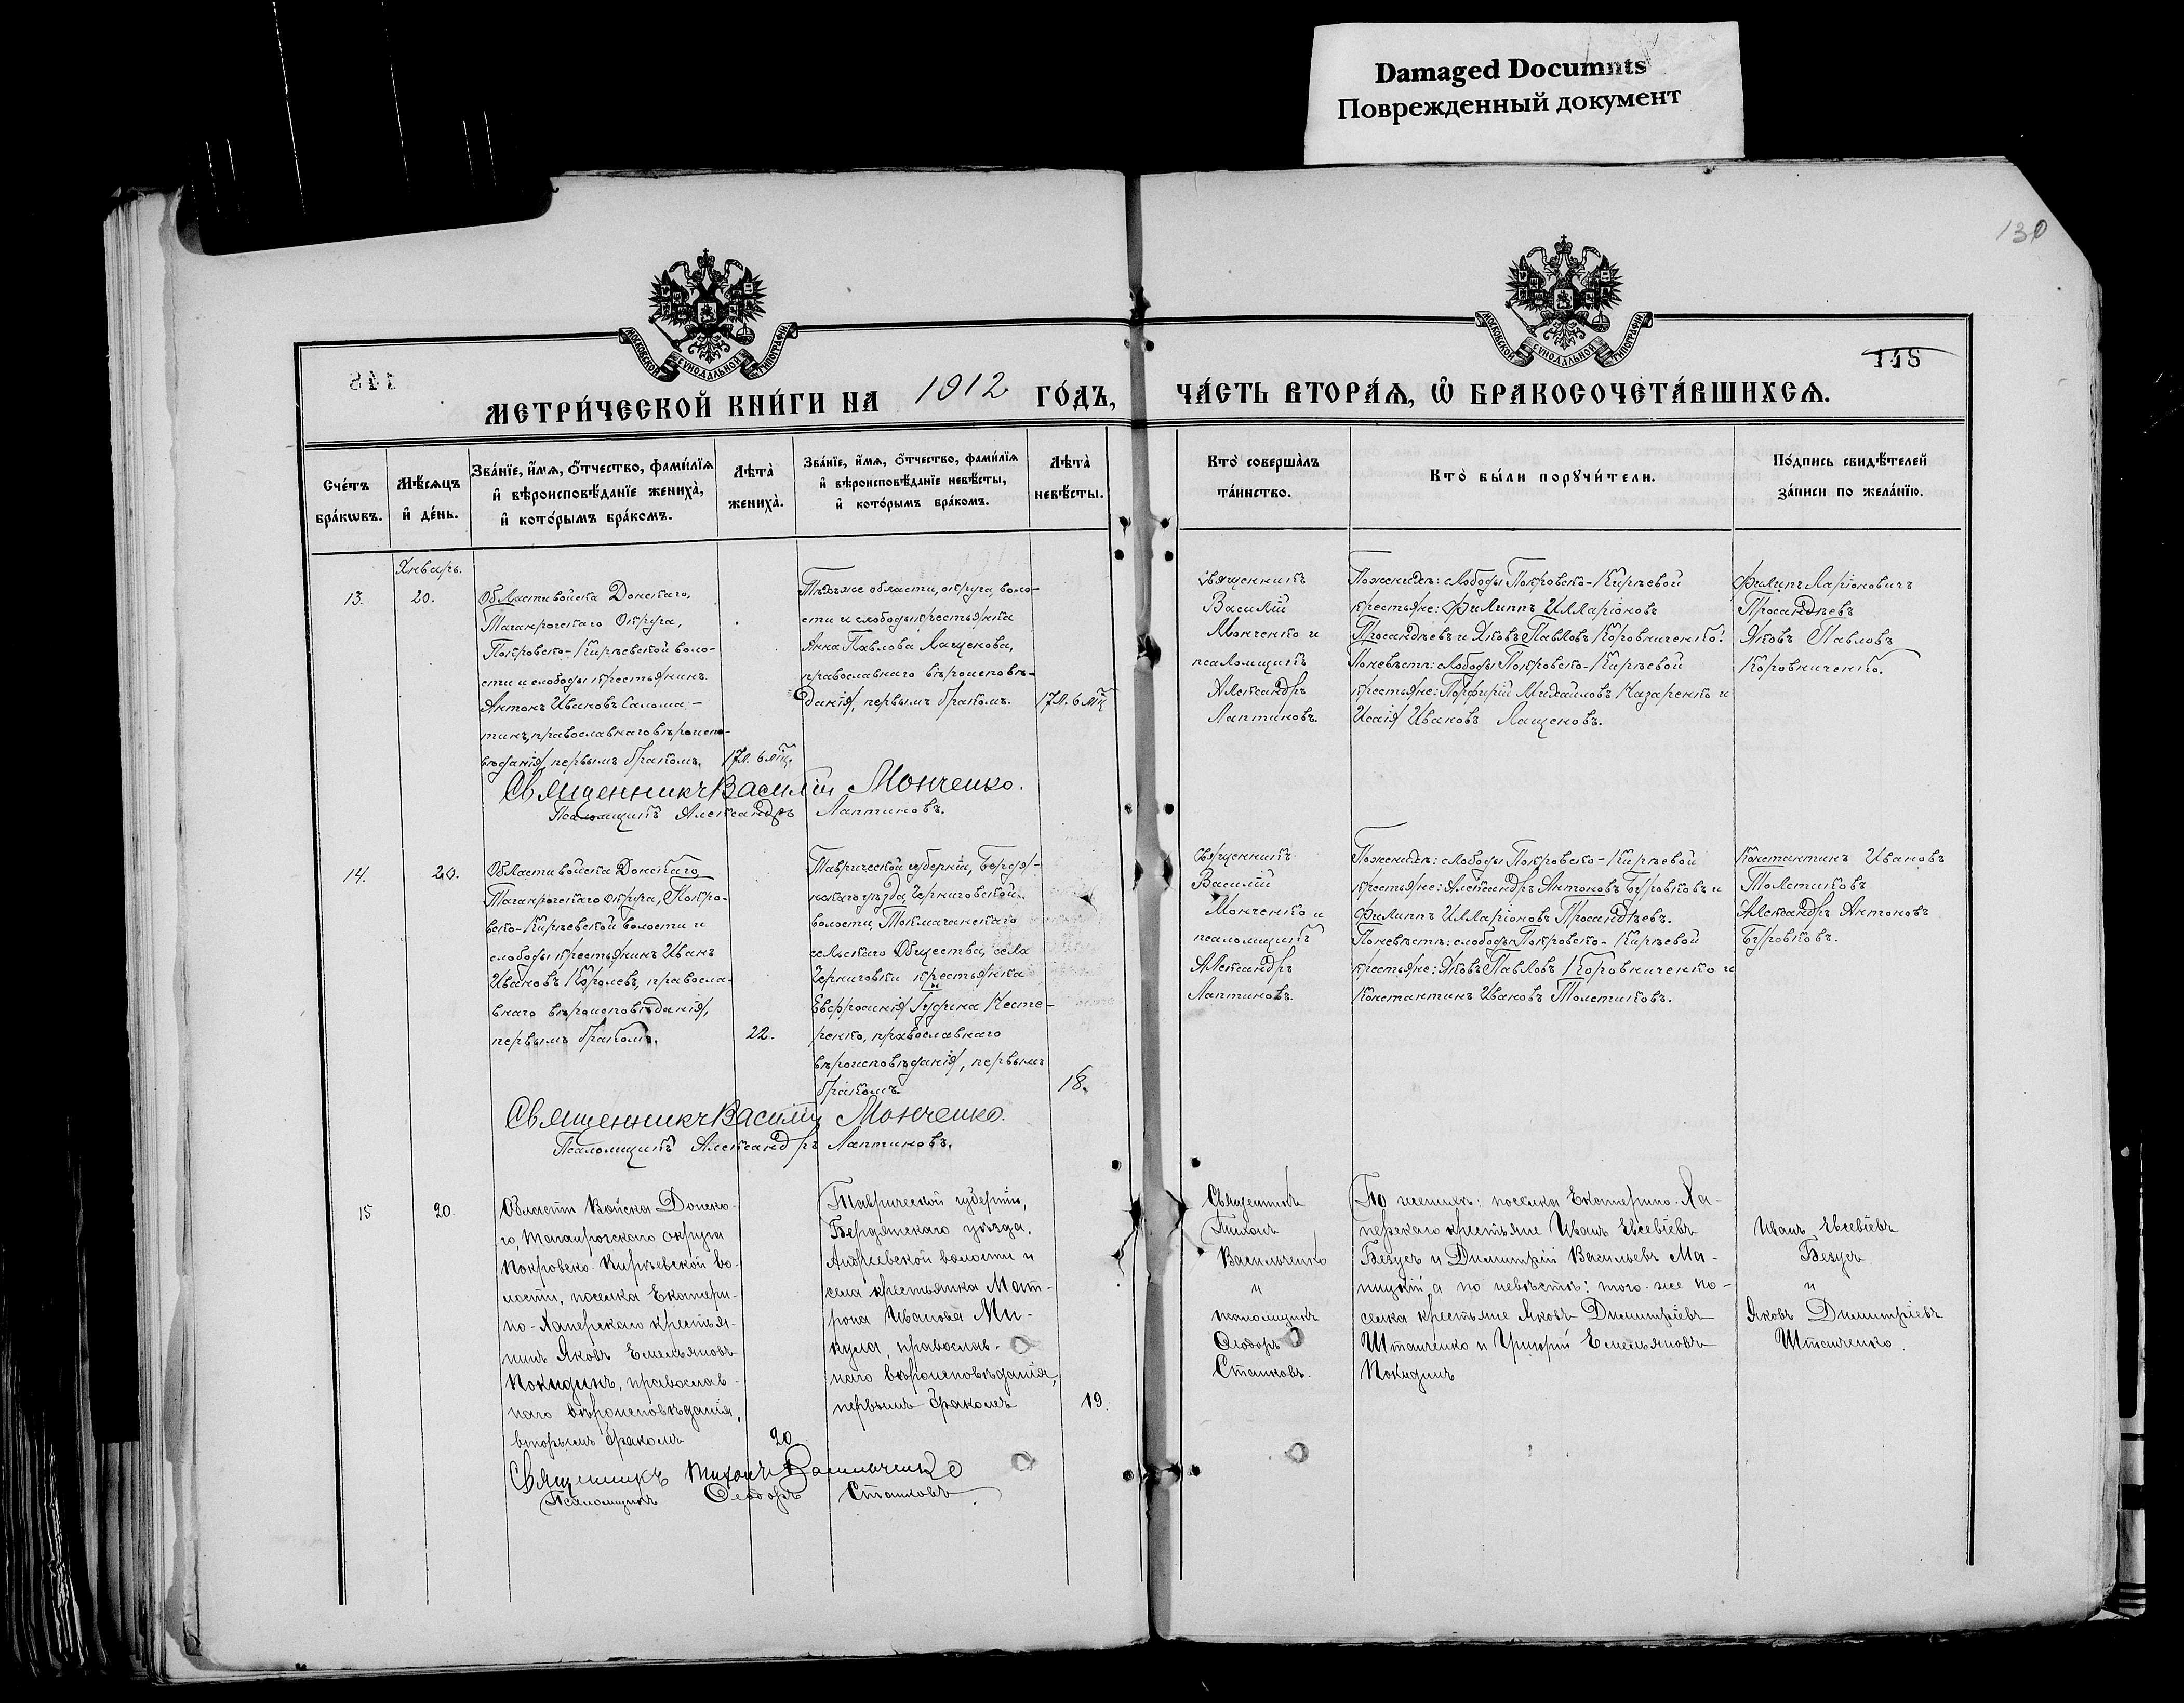 Damaged Documnts
Поврежденный документ
130
148
МОСКОВСКОЙ СѴНОДАЛЬНОЙ ТИПОГРАФІИ
МОСКОВСКОЙ СѴНОДАЛЬНОЙ ТИПОГРАФІИ
МЕТРИ́ЧЕСКОЙ КНИ́ГИ НА 1912 ГО́ДЪ, ЧА́СТЬ ВТОРА́Я, Ѿ БРАКОСОЧЕТА́ВШИХСЯ.
Сче́тъ
бра́кѡвъ.
Мѣ́сяцъ
и҆ де́нь.
Зва́нїе, и҆́мя, ѻ҆́тчество, фами́лїя
и҆ вѣроисповѣ́данїе жениха̀,
и҆ кото́рымъ бра́комъ.
Лѣта̀
жениха̀.
Зва́нїе, и҆́мя, ѻ҆́тчество, фами́лїя
и҆ вѣроисповѣ́данїе невѣ́сты,
и҆ кото́рымъ бра́комъ.
Лѣта̀
невѣ́сты.
Кто̀ соверша̀лъ
та́инство.
Кто̀ бы́ли порꙋчи́тели.
По́дпись свидѣ́телей
за́писи по жела́нїю.
Январь.
13.
20.
Области войска Донскаго,
Таганрогскаго Округа,
Покровско-Кирѣевской воло-
сти и слободы крестьянинъ
Антонъ Ивановъ Салома-
тинъ, православнаго вѣроиспо-
вѣданія, первымъ бракомъ.
17 л. 6 мц.
Тѣхъ же области, округа, воло-
сти и слободы крестьянка
Анна Павлова Лащенова,
православнаго вѣроисповѣ-
данія, первымъ бракомъ.
17 л. 6 мц
Священникъ
Василій
Мончено и
псаломщикъ
Александръ
Лаптиновъ.
По женихѣ: слободы Покровско-Кирѣевой
крестьяне: Филиппъ Илларіоновъ
Просандѣевъ и Яковъ Павловъ Коровниченко.
По невѣстѣ: слободы Покровско-Кирѣевой
крестьяне: Порфирій Михайловъ Назаренко и
Исаія Ивановъ Лащеновъ.
Филипъ Ларіоновичъ
Просандѣевъ
Яковъ Павловъ
Коровниченко.
Священникъ Василій Монченко.
Псаломщикъ Александръ Лаптиновъ.
14.
20.
Области войска Донскаго
Таганрогскаго округа, Покро-
вско-Кирѣевской волости и
слободы крестьянинъ Иванъ
Ивановъ Королевъ, правосла-
внаго вѣроисповѣданія,
первымъ бракомъ.
22.
Таврической губерніи, Бердян-
скаго уѣзда, Черниговской
волости, Токмачанскаго
сельскаго Общества, села
Черниговки крестьянка
Евфросинія Гурина Несте-
ренко, православнаго
вѣроисповѣданія, первымъ
бракомъ
18.
Священникъ
Василій
Монченко и
псаломщикъ
Александръ
Лаптиновъ.
По женихѣ: слободы Покровско-Кирѣевой
крестьяне: Александръ Антоновъ Буровковъ и
Филиппъ Илларіоновъ Просандѣевъ.
По невѣстѣ: слободы Покровско-Кирѣевой
крестьяне: Яковъ Павловъ Коровниченко и
Константинъ Ивановъ Толстиковъ.
Константинъ Ивановъ
Толстиковъ
Александръ Антоновъ
Буровковъ.
Священникъ Василій Монченко.
Псаломщикъ Александръ Лаптиновъ.
15
20.
Области Войска Донско-
го, Таганрогскаго округа
Покровско-Кирѣевской во-
лости, поселка Екатери-
но-Хаперскаго крестья-
нинъ Яковъ Емельяновъ
Покидинъ, православ-
наго вѣроисповѣданія,
вторымъ бракомъ
20
Таврической губерніи,
Бердянскаго уѣзда,
Андреевской волости и
села крестьянка Мат-
рона Иванова Ми-
кула, православ-
наго вѣроисповѣданія,
первымъ бракомъ
19.
Священникъ
Тихонъ
Васильченко
и
псаломщикъ
Ѳеодоръ
Станковъ.
По женихѣ: поселка Екатерино-Ха-
перскаго крестьяне Иванъ Евсевіевъ
Безусъ и Димитрій Васильевъ Ма-
ницкій а по невѣстѣ: того-же по-
селка крестьяне Яковъ Димитріевъ
Штанченко и Григорій Емельяновъ
Покидинъ
Иванъ Евсевіевъ
Безусъ
и
Яковъ Димитріевъ
Штанченко.
Священникъ Тихонъ Васильченко
Псаломщикъ Ѳеодоръ Станковъ.